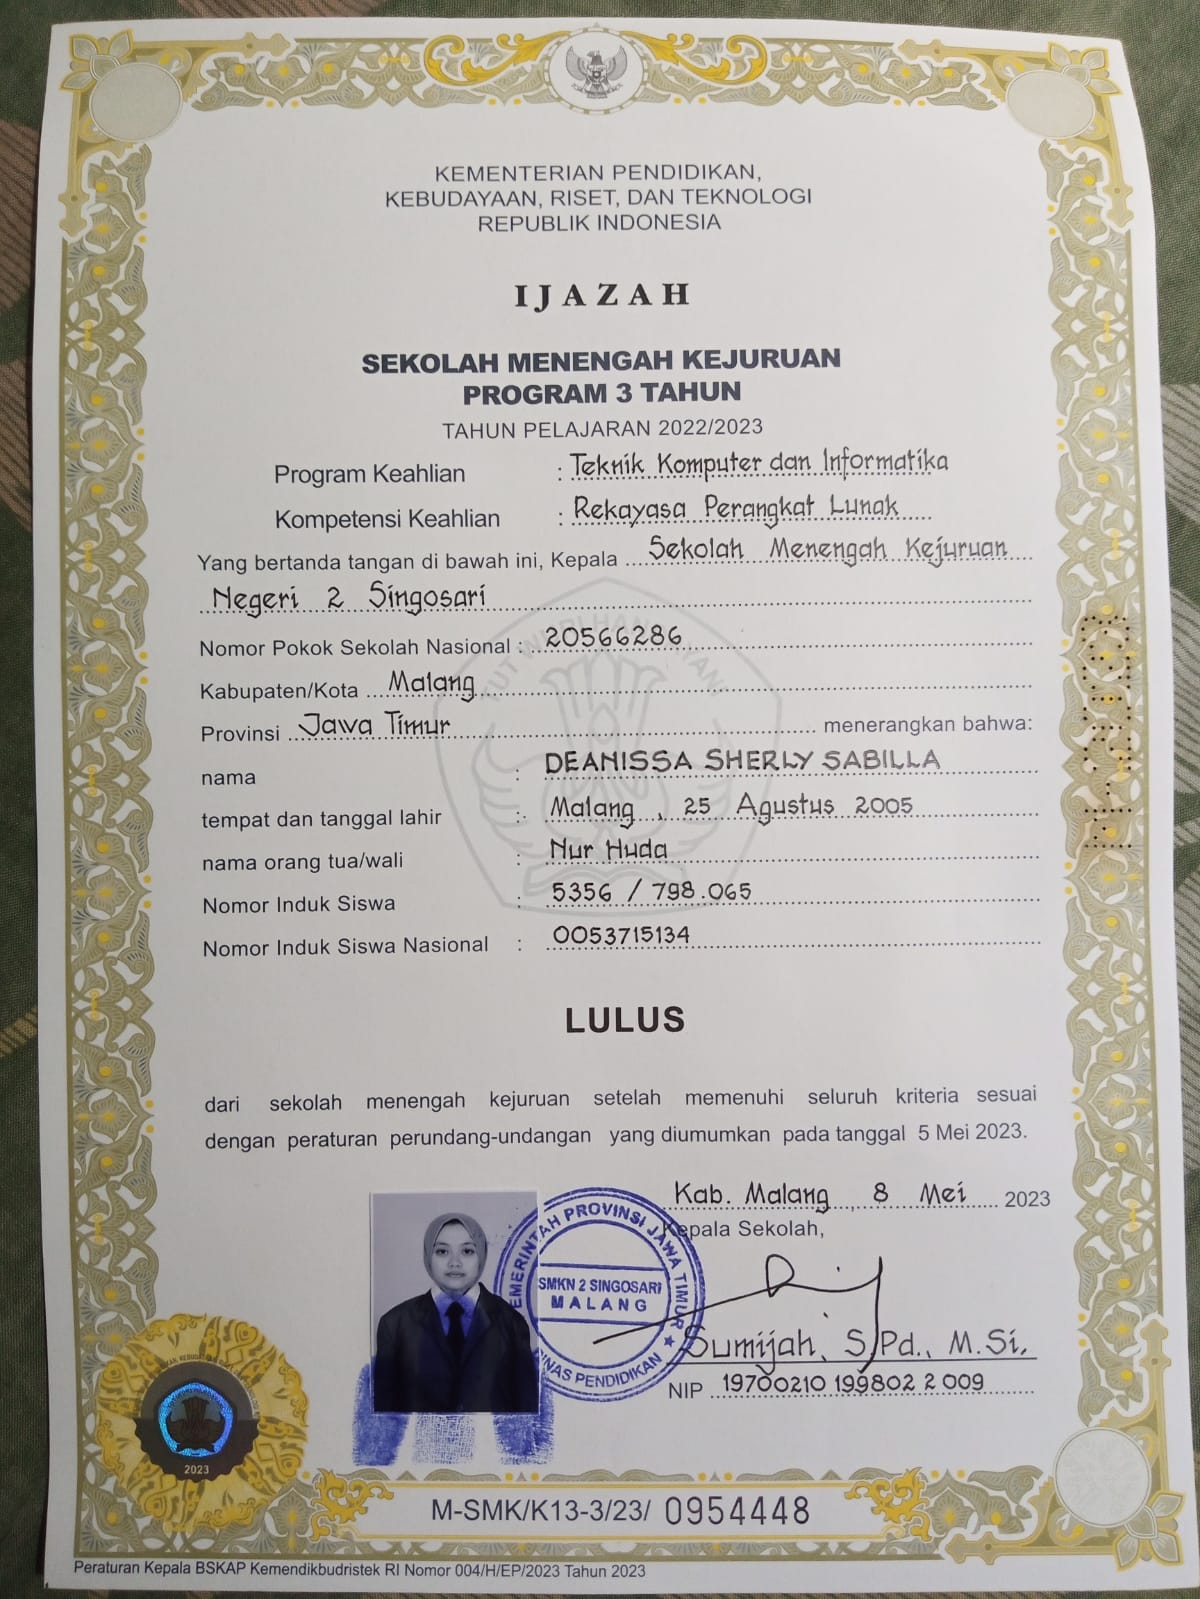 KEMENTERIAN PENDIDIKAN,
KEBUDAYAAN, RISET, DAN TEKNOLOGI
REPUBLIK INDONESIA
IJAZAH
SEKOLAH MENENGAH KEJURUAN
PROGRAM 3 TAHUN
TAHUN PELAJARAN 2022/2023
Program Keahlian : Teknik Komputer dan Informatika
Kompetensi Keahlian : Rekayasa Perangkat Lunak
Yang bertanda tangan di bawah ini, Kepala Sekolah Menengah Kejuruan
Negeri 2 Singosari
Nomor Pokok Sekolah Nasional : 20566286
Kabupaten/Kota Malang
Provinsi Jawa Timur menerangkan bahwa:
nama : DEANISSA SHERLY SABILLA
tempat dan tanggal lahir : Malang, 25 Agustus 2005
nama orang tua/wali : Nur Huda
Nomor Induk Siswa : 5356 / 798.065
Nomor Induk Siswa Nasional : 0053715134
LULUS
dari sekolah menengah kejuruan setelah memenuhi seluruh kriteria sesuai
dengan peraturan perundang-undangan yang diumumkan pada tanggal 5 Mei 2023.
Kab. Malang, 8 Mei 2023
Kepala Sekolah,
PEMERINTAH PROVINSI JAWA TIMUR
SMKN 2 SINGOSARI
MALANG
DINAS PENDIDIKAN
Sumijah, S.Pd., M.Si.
NIP 19700210 199802 2 009
2023
M-SMK/K13-3/23/ 0954448
Peraturan Kepala BSKAP Kemendikbudristek RI Nomor 004/H/EP/2023 Tahun 2023